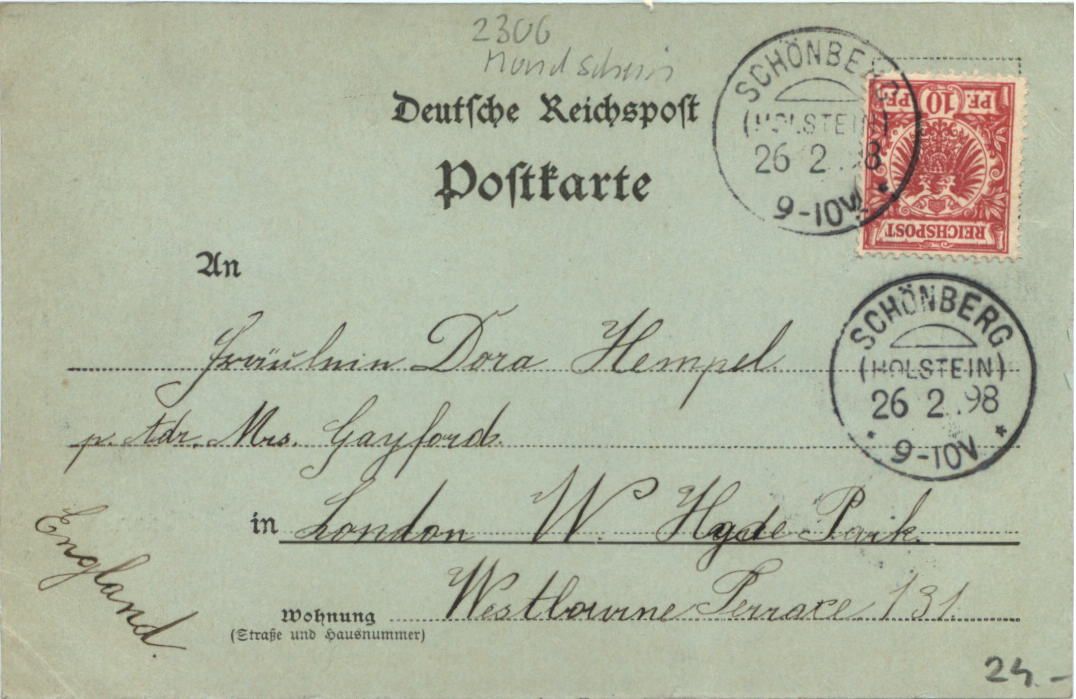 2306
Mondschein
Deutsche Reichspost
Postkarte
SCHÖNBERG
(HOLSTEIN)
26 2 .98
9-10V
PF. 10 PF.
REICHSPOST
An
Fräulein Dora Hempel.
SCHÖNBERG
(HOLSTEIN)
26 2 .98
* 9-10V *
p. Adr. Mrs. Gayford.
in London W. Hyde Park.
England.
Westbourne Terrace 131.
Wohnung
(Straße und Hausnummer)
24.-